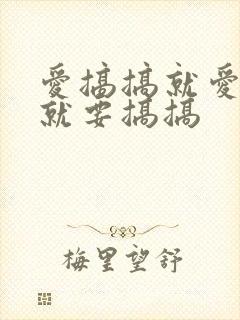 爱搞搞就爱
就要搞搞
梅里望舒